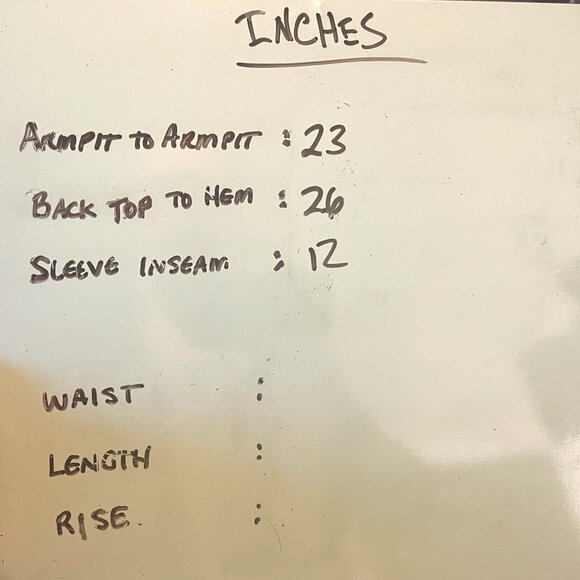 INCHES
ARMPIT TO ARMPIT : 23
BACK TOP TO HEM : 26
SLEEVE INSEAM : 12
WAIST :
LENGTH :
RISE :